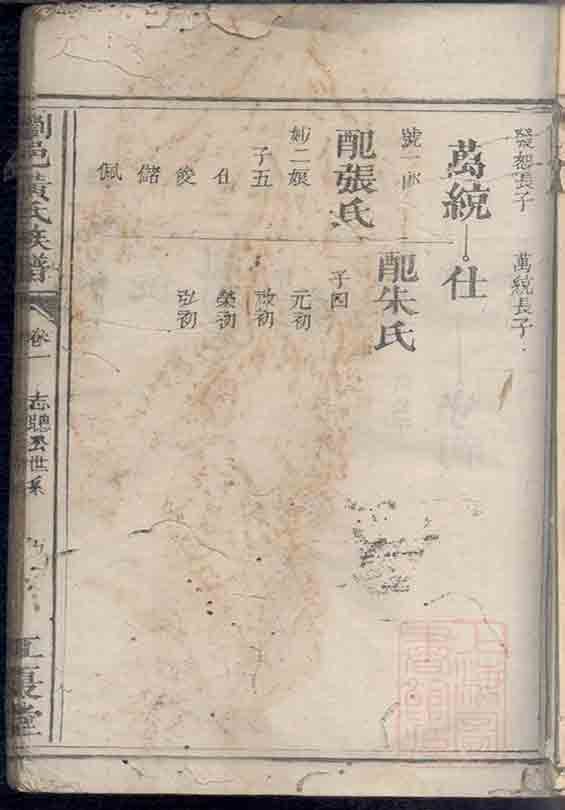 發恕長子
萬統
號一郎
配張氏
妙二娘
子五
仕
俊
儲
佩
萬統長子
仕
配朱氏
子四
元初
啟初
榮初
弘初
瀏邑黃氏族譜
卷一
志聰公世系